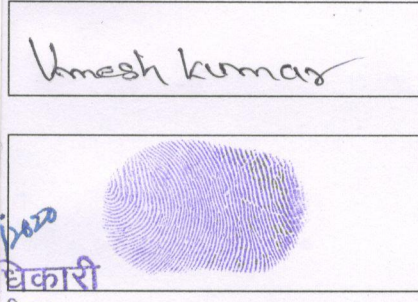 Umesh Kumar
2020
धिकारी